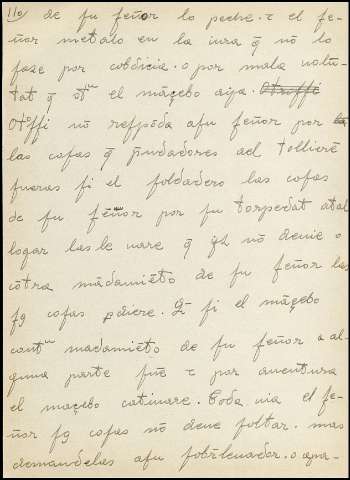 110/ de su señor lo peche. τ el se-
ñor metalo en la iura q̄ nō lo
faze por cobdicia. o por mala uolū-
tat q̄ el māçebo aya.
Otˢsi nō respōda a su señor por
las cosas q̄ p̄udadores ael tollierē
fueras si el soldadero las cosas
de su señor por su torpedat atal
logar las leuare q̄ nō deuie o
cōtra mādamiēto de su señor las
sꝯ cosas pdiere. Et si el māçebo
madamiēto de su señor a al-
guna parte fuē τ por auentura
el maçebo catiuare. Toda uia el se-
ñor sꝯ cosas nō deue foltar. mas
demandelas a su sobrleuador. o apa-